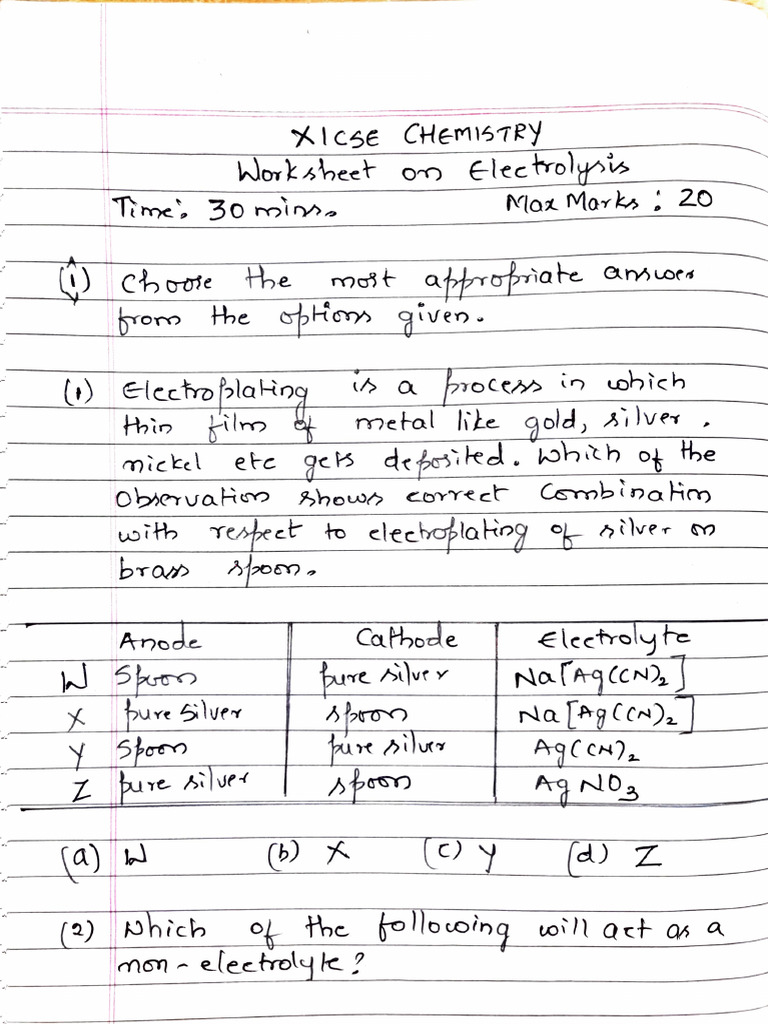 X ICSE CHEMISTRY
Worksheet on Electrolysis
Time: 30 mins. Max Marks: 20
(1) Choose the most appropriate answer
from the options given.
(1) Electroplating is a process in which
thin film of metal like gold, silver,
nickel etc gets deposited. Which of the
observation shows correct combination
with respect to electroplating of silver on
brass spoon.
Anode Cathode Electrolyte
W Spoon pure silver Na[Ag(CN)₂]
X pure silver spoon Na[Ag(CN)₂]
Y Spoon pure silver Ag(CN)₂
Z pure silver spoon AgNO₃
(a) W (b) X (c) Y (d) Z
(2) Which of the following will act as a
non-electrolyte?